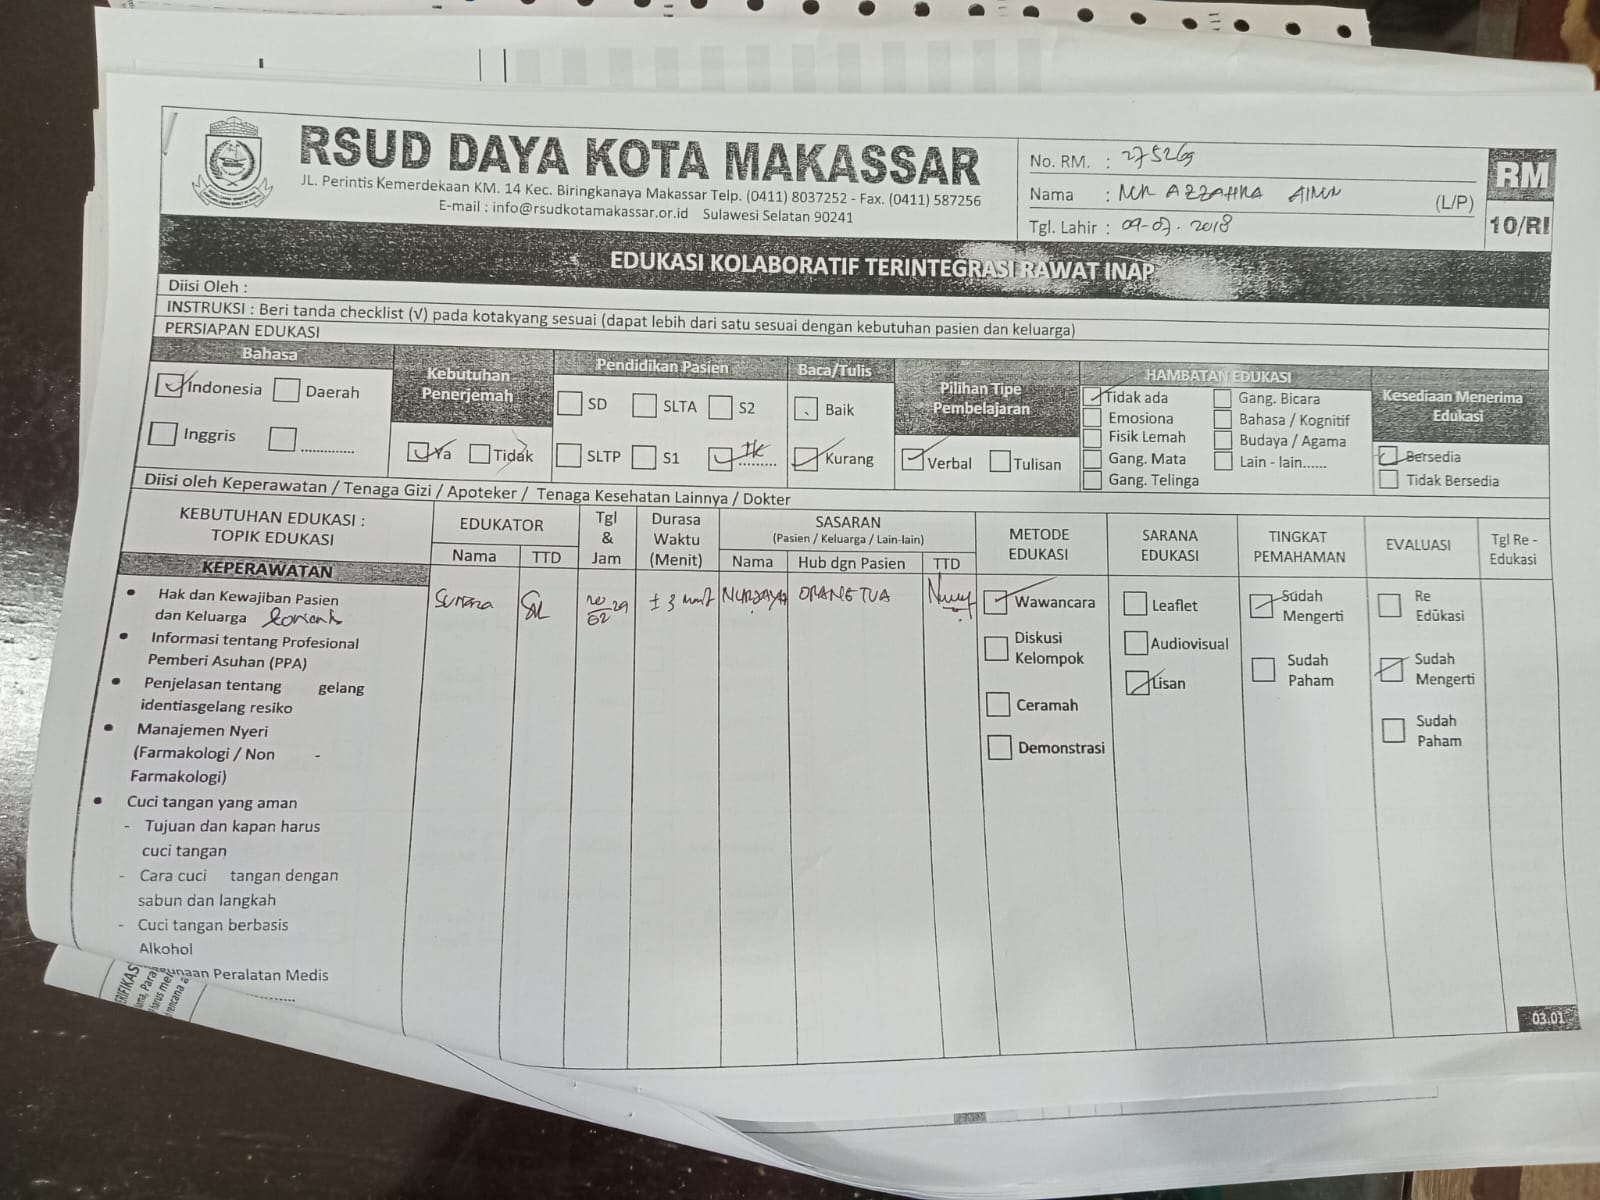 RSUD DAYA KOTA MAKASSAR
JL. Perintis Kemerdekaan KM. 14 Kec. Biringkanaya Makassar Telp. (0411) 8037252 - Fax. (0411) 587256
E-mail : info@rsudkotamakassar.or.id Sulawesi Selatan 90241
No. RM. : 275269
Nama : AZZAHRA
(L/P)
Tgl. Lahir : 2018
RM
10/RI
EDUKASI KOLABORATIF TERINTEGRASI RAWAT INAP
Diisi Oleh :
INSTRUKSI : Beri tanda checklist (√) pada kotakyang sesuai (dapat lebih dari satu sesuai dengan kebutuhan pasien dan keluarga)
PERSIAPAN EDUKASI
Bahasa
Indonesia Daerah
Inggris ..............
Kebutuhan
Penerjemah
Ya Tidak
Pendidikan Pasien
SD SLTA S2
SLTP S1 .........
Baca/Tulis
Baik
Kurang
Pilihan Tipe
Pembelajaran
Verbal Tulisan
HAMBATAN EDUKASI
Tidak ada Gang. Bicara
Emosiona Bahasa / Kognitif
Fisik Lemah Budaya / Agama
Gang. Mata Lain - lain......
Gang. Telinga
Kesediaan Menerima
Edukasi
Bersedia
Tidak Bersedia
Diisi oleh Keperawatan / Tenaga Gizi / Apoteker / Tenaga Kesehatan Lainnya / Dokter
KEBUTUHAN EDUKASI :
TOPIK EDUKASI
EDUKATOR
Nama TTD
Tgl
&
Jam
Durasa
Waktu
(Menit)
SASARAN
(Pasien / Keluarga / Lain-lain)
Nama Hub dgn Pasien TTD
METODE
EDUKASI
SARANA
EDUKASI
TINGKAT
PEMAHAMAN
EVALUASI
Tgl Re -
Edukasi
KEPERAWATAN
• Hak dan Kewajiban Pasien
dan Keluarga
• Informasi tentang Profesional
Pemberi Asuhan (PPA)
• Penjelasan tentang gelang
identiasgelang resiko
• Manajemen Nyeri
(Farmakologi / Non -
Farmakologi)
• Cuci tangan yang aman
- Tujuan dan kapan harus
cuci tangan
- Cara cuci tangan dengan
sabun dan langkah
- Cuci tangan berbasis
Alkohol
Peralatan Medis
NURJAYA
ORANG TUA
Wawancara
Diskusi
Kelompok
Ceramah
Demonstrasi
Leaflet
Audiovisual
Lisan
Sudah
Mengerti
Sudah
Paham
Re
Edukasi
Sudah
Mengerti
Sudah
Paham
03.01